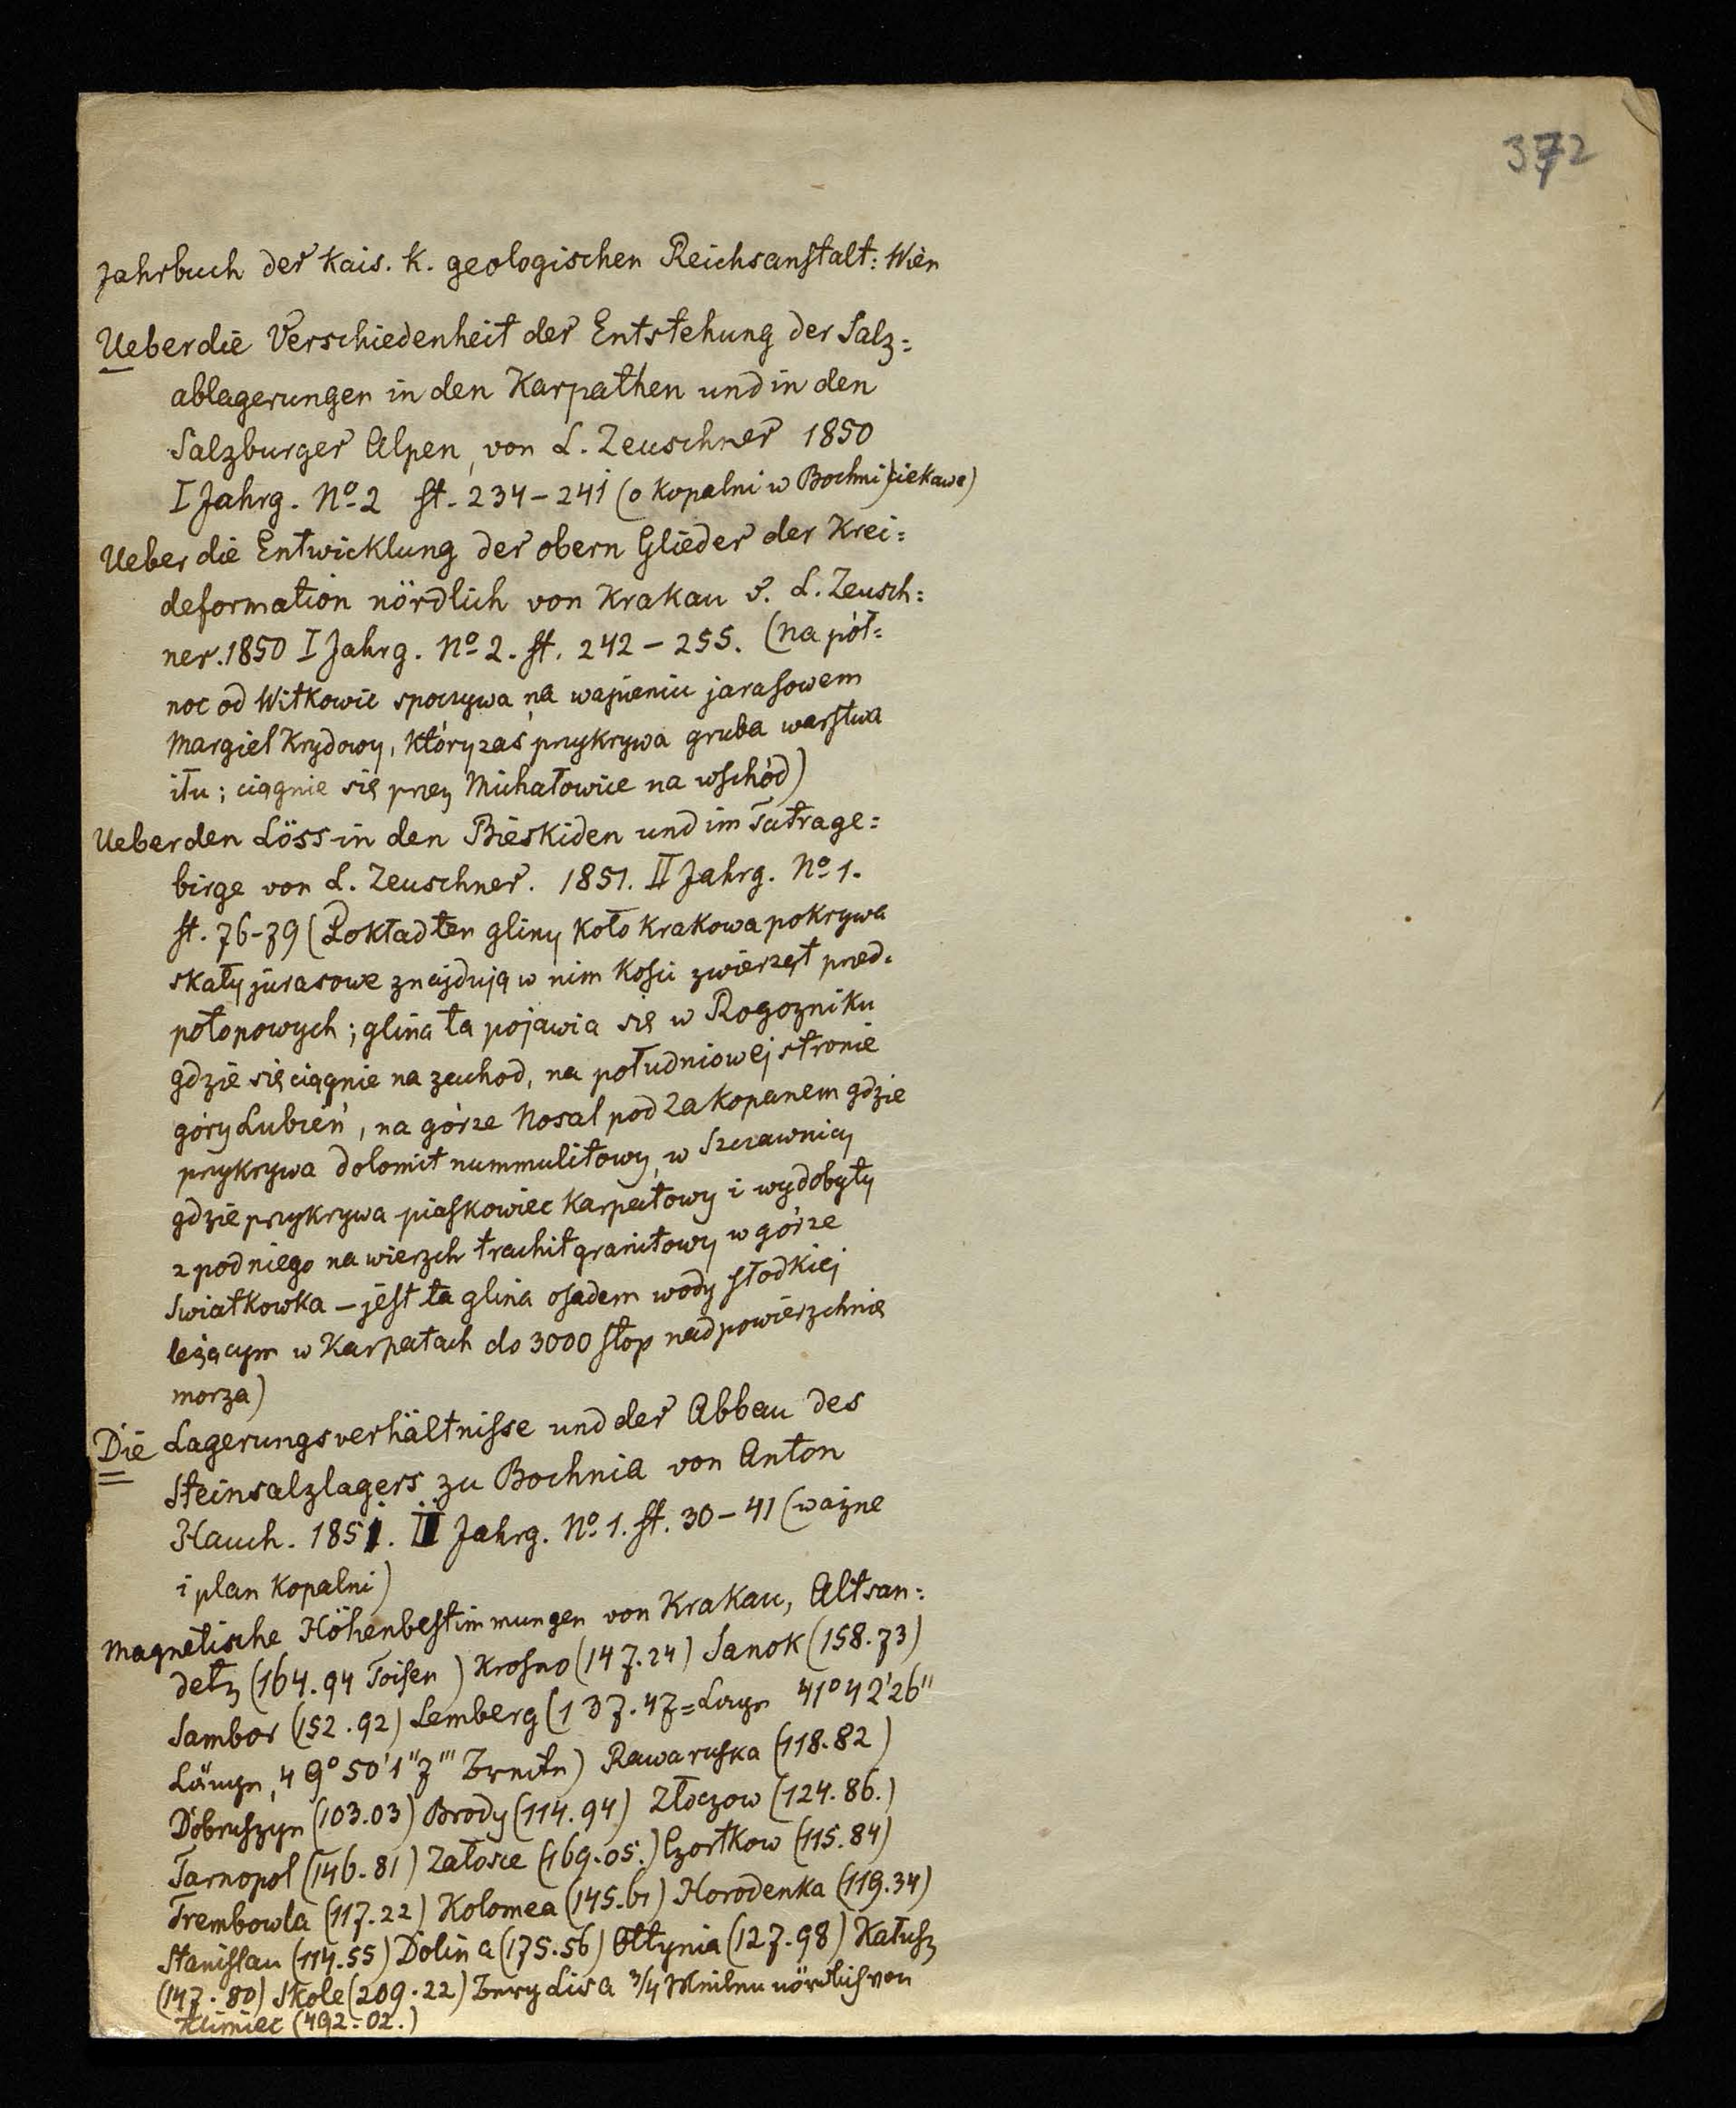 372
Jahrbuch der Kais. K. geologischen Reichsanstalt: Wien
Ueber die Verschiedenheit der Entstehung der Salz=
ablagerungen in den Karpathen und in den
Salzburger Alpen, von L. Zeuschner 1850
I Jahrg. No 2 st. 234-241 (o Kopalni w Bochni) ciekawe)
Ueber die Entwicklung der obern Glieder der Krei=
deformation nördlich von Krakau v. L. Zeusch=
ner. 1850 I Jahrg. No 2. st. 242-255. (na pół=
noc od Witkowic spoczywa na wapieniu jurasowem
margiel Krydowy, który zaś przykrywa gruba warstwa
iłu; ciągnie się przez Michałowice na wschód)
Ueber den Löss in den Bieskiden und im Tatrage=
birge von L. Zeuschner. 1851. II Jahrg. No 1.
st. 76-79 (Pokład ten gliny koło Krakowa pokrywa
skały jurasowe znajdują w nim kości zwierząt przed=
potopowych; glina ta pojawia się w Rogozniku
gdzie się ciągnie na zachod, na południowej stronie
góry Lubień, na górze Nosal pod Zakopanem gdzie
przykrywa dolomit nummulitowy, w Szczawnicy
gdzie przykrywa piaskowiec Karpatowy i wydobyty
z pod niego na wierzch trachit granitowy w górze
Swiatkowka - jest ta glina osadem wody słodkiej
leżącym w Karpatach do 3000 stop nad powierzchnię
morza)
Die Lagerungsverhältnisse und der Abbau des
Steinsalzlagers zu Bochnia von Anton
Hauch. 1851. II Jahrg. No 1. st. 30-41 (ważne
i plan Kopalni)
Magnetische Höhenbestimmungen von Krakau, Altsan=
detz (164.94 Toisen) Krosno (147.24) Sanok (158.73)
Sambor (152.92) Lemberg (137.47= 41° 42' 26"
49° 50' 1" 7"' Breite) Rawaruska (118.82)
Dobruszyn (103.03) Brody (114.94) Złoczow (124.86.)
Tarnopol (146.81) Załosce (169.05.) Czortkow (115.84)
Trembowla (117.22) Kolomea (145.61) Horodenka (119.34)
Stanislau (114.55) Dolina (175.56) Ottynia (127.98) Kałusz
(147.80) Skole (209.22) Berg Lisa 3/4 Meilen nördlich von
Klimiec (492.02.)